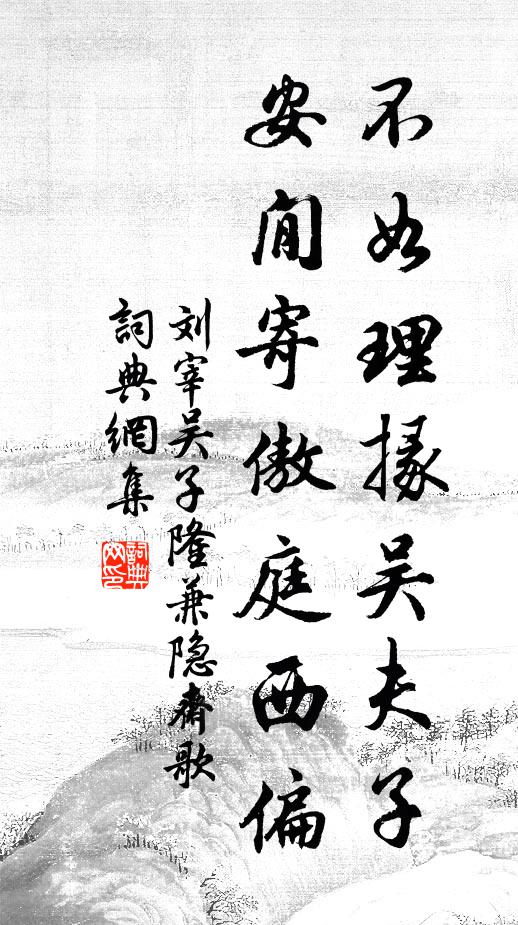 不如理掾吴夫子
安闲寄傲庭西偏
刘宰吴子隆兼隐斋歌
詞典網集
詞典
网印